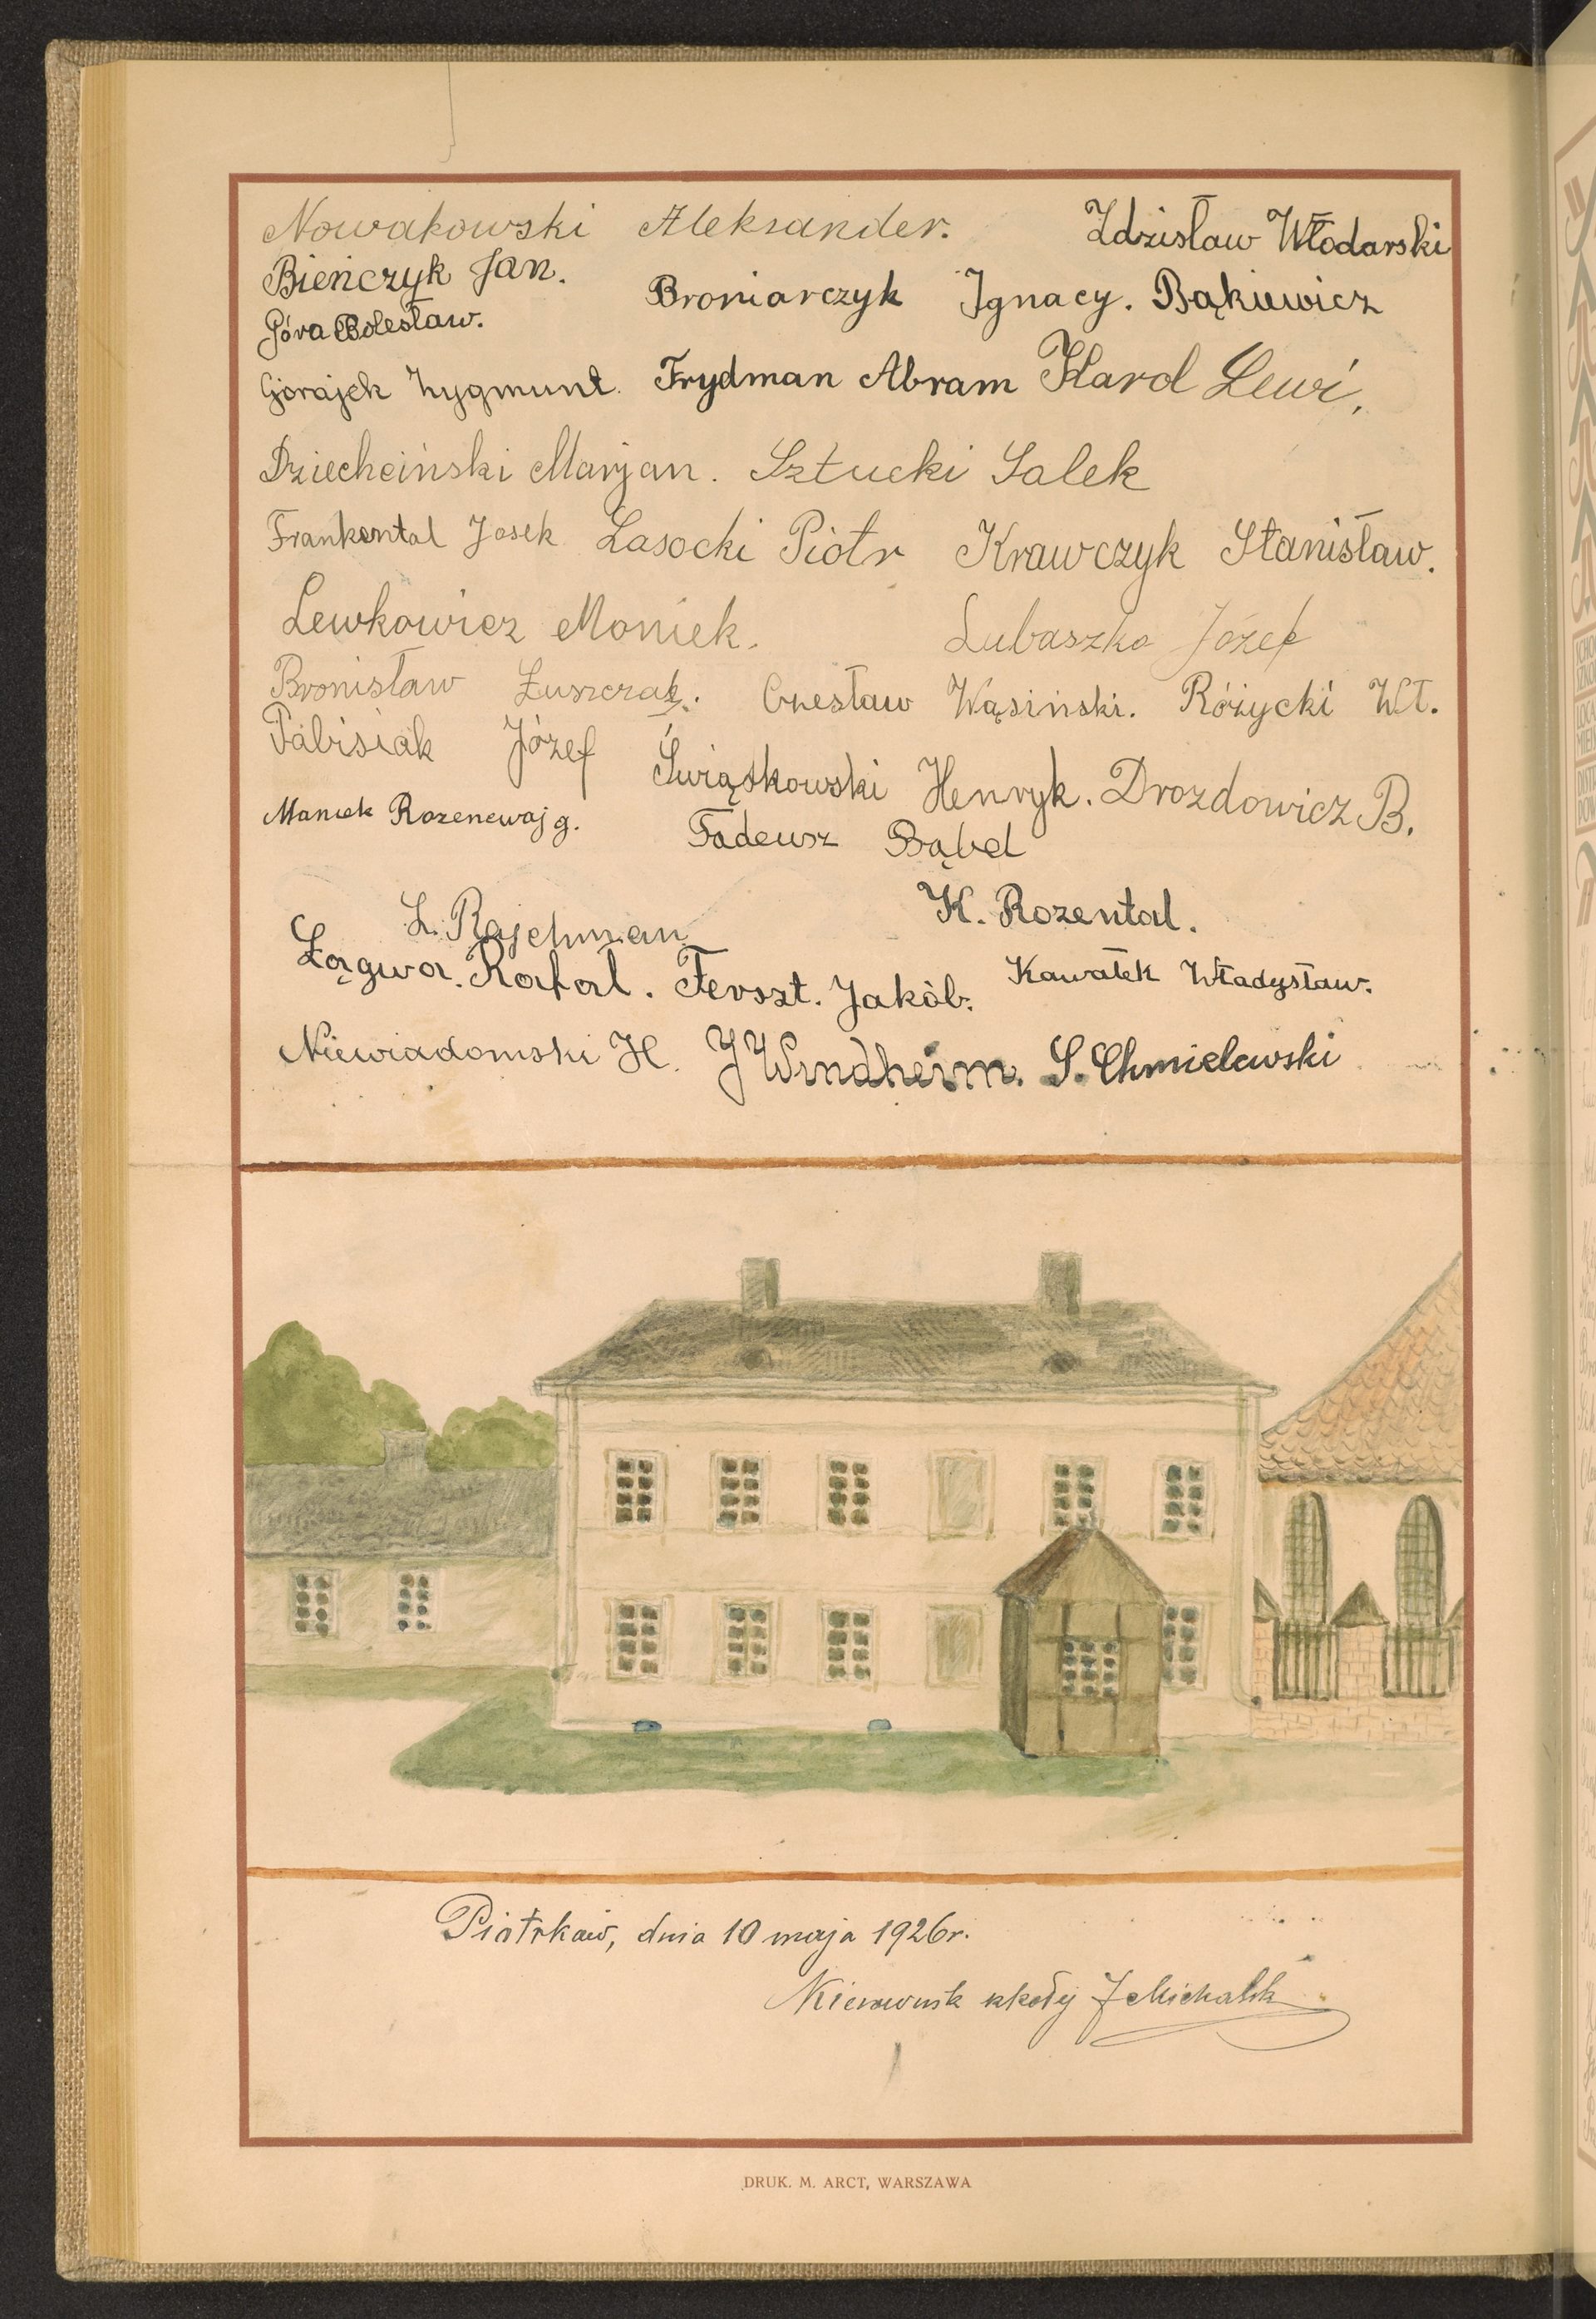 Nowakowski Aleksander. Zdzisław Włodarski
Bieńczyk Jan. Broniarczyk Ignacy. Bąkiewicz
Góra Bolesław.
Gorajek Zygmunt. Frydman Abram Karol Lewi.
Dziecheiński Marjan. Sztucki Salek
Frankental Josek Lasocki Piotr Krawczyk Stanisław.
Lewkowicz Moniek. Lubaszka Józef
Bronisław Łuszczak. Czesław Wąsiński. Różycki Wł.
Pabisiak Józef Świątkowski Henryk. Drozdowicz B.
Maniek Rozencwajg. Tadeusz Bąbel
L. Rajchman K. Rozental.
Łągwa. Rafał. Ferszt. Jakób. Kawałek Władysław.
Niewiadomski H. J Windheim. S. Chmielewski
Piotrków, dnia 10 maja 1926r.
Kierownik szkoły J Michalik
DRUK. M. ARCT, WARSZAWA